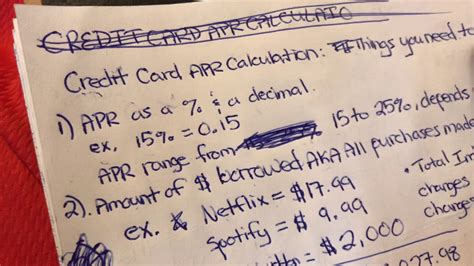 CREDIT CARD APR CALCULATIO
Credit Card APR Calculation: Things you need to
1) APR as a % & a decimal.
ex. 15% = 0.15
APR range from 15 to 25%, depends
2). Amount of $ borrowed AKA All purchases made
ex. Netflix = $17.99
Spotify = $ 9.99
= $2,000
• Total Int
charges
charge
27.98